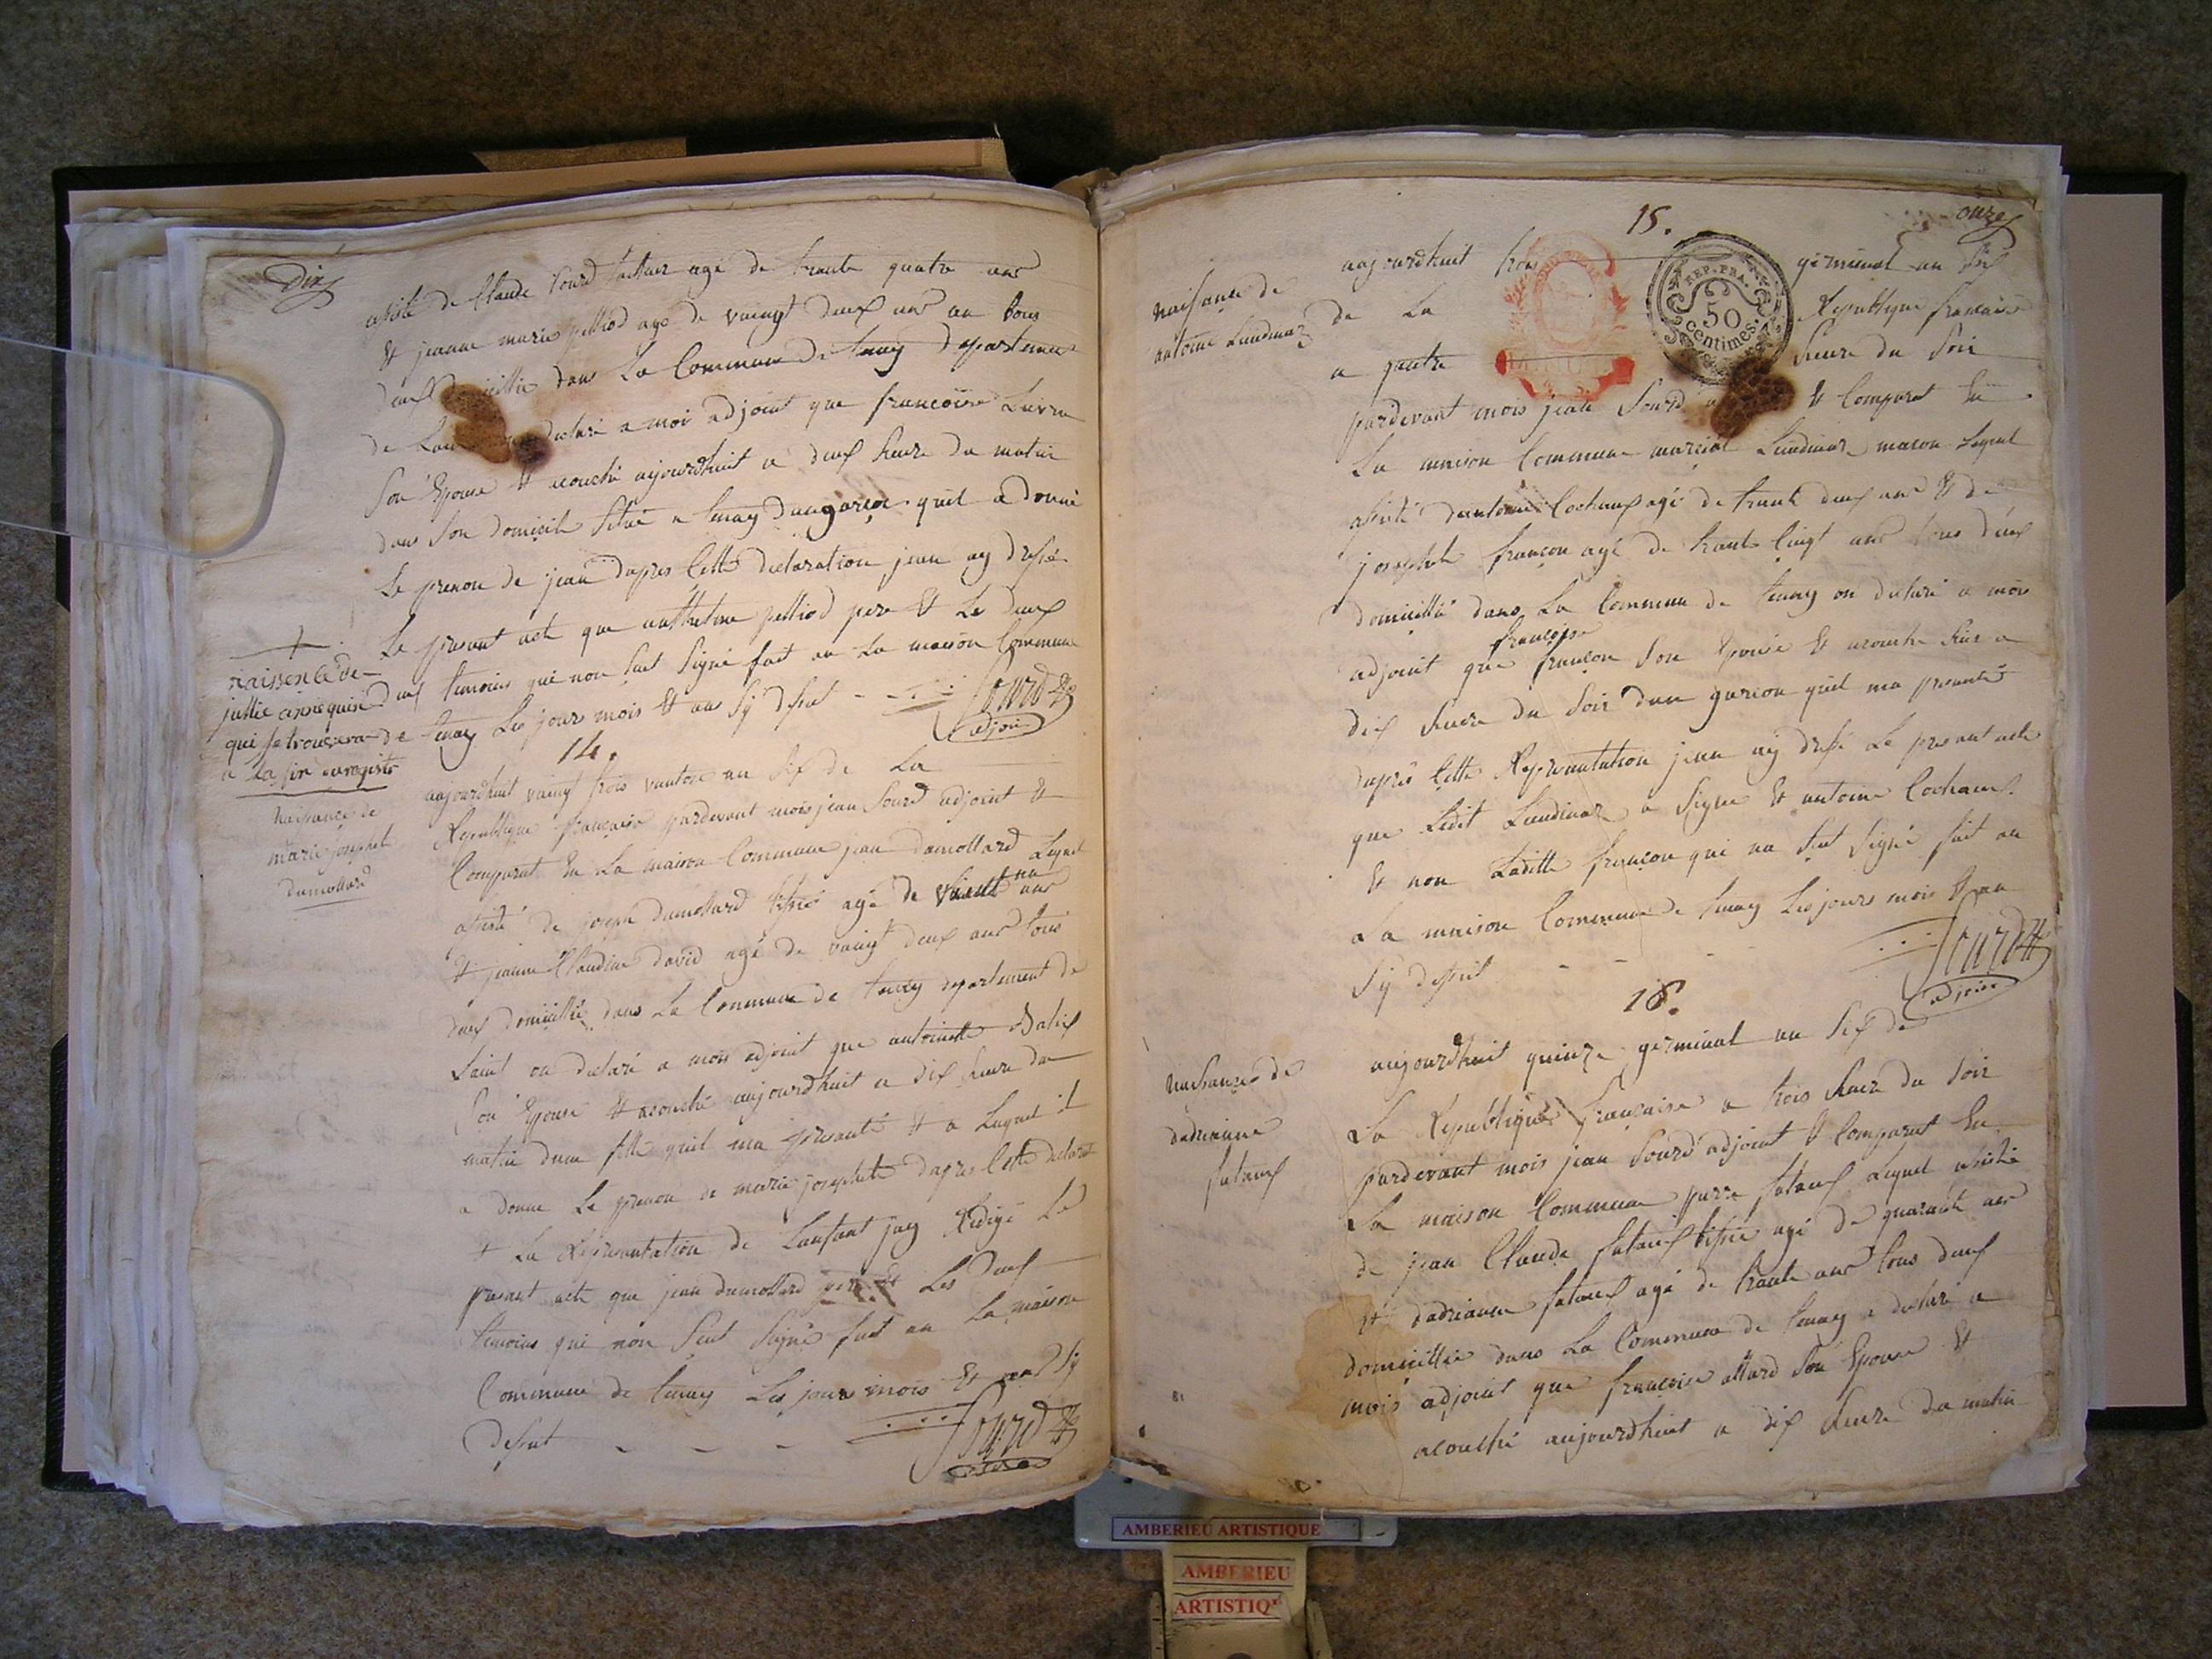 Dix
assisté de Claude Sourd facteur agé de trante quatre ans
Et jeanne marie pelliod agé de vaingt deux ans on tous
deux dans La Commune de tenay departement
de declaré a moi adjoint que francoise
son Epouse Et acouché aujourdhuit a deux heure du matin
dans Son domicile Situé a tenay dun garçon quil a donné
Le prenon de jean dapres Cette declaration jean ay dressé
Le presant acte que pelliod pere Et Les deux
temoins qui non Seut Signé fait an La maison Commune
de tenay Les jours mois Et ans Sÿ desut
Sourd
adjoin
naissence de
julie
qui se trouvera
a la fin du registre
14.
naissance de
marie josephete
dumollard
aujourdhuit vaingt trois vantose an Six de La
Republique française pardevant mois jean Sourd adjoint Et
Comparut En La maison Commune jean dumollard Lequel
assisté de joseph dumollard tissié agé de ans
Et jeanne Claudine david agé de vaingt deux ans tous
deux domicillié dans La Commune de tenay departement de
Laint on declaré a mois adjoint que antoinette
Son Epouse Et acouché aujourdhuit a dix heure du
matin dune fille quil ma presanté Et a Laquel il
a donné Le prenon de marie josephete dapres Cette declarat
Et La Representation de Lanfant jay Redigé Le
presant acte que jean dumollard pere Et Les deux
temoins qui non Seut Signé fait an La maison
Commune de tenay Les jours mois Et ans Sÿ
desut
Sourd
15.
onze
REP. FRA.
50
centimes.
naissance de
antoine Lundinar
aujourdhuit trois germinal an Six
de La Republique francaise
a quatre heure du Soir
pardevant mois jean Sourd Et Comparut En
La maison Commune marcial Lundinar macon Lequel
assisté dantoine Cochaux agé de trante deux ans Et de
josephete françon agé de trante Cingt ans tous deux
domicillié dans La Commune de tenay on declaré a mois
francoise
adjoint que françon Son Epouse Et acouché hier a
dix heure du Soir dun garcon quil ma presanté
dapres Cette Representation jean aÿ dressé Le presant acte
que Ledit Lundinar a Signé Et antoine Cochaux
Et non Laditte françon qui na Seut Signé fait an
a La maison Commune de tenay Les jours mois Et an
Sÿ desut
Sourd
adjoin
16.
naissance de
dadrianne
futaux
aujourdhuit quinze germinal an Six de
La Republique française a trois heure du Soir
pardevant mois jean Sourd adjoint Et Comparut En
La maison Commune pierre futaux Lequel assisté
de jean Claude futaux tissié agé de quarante ans
Et dadrianne futaux agé de trante ans tous deux
domicillié dans La Commune de tenay a declaré a
mois adjoint que françoise allard Son Epouse Et
acouché aujourdhuit a dix heure du matin
AMBERIEU ARTISTIQUE
AMBERIEU
ARTISTIQ